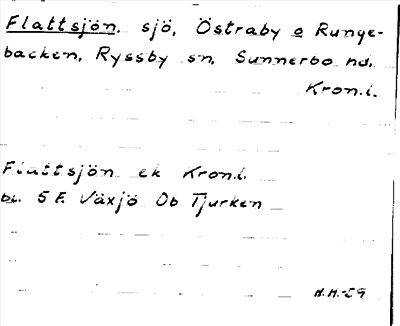 Flattsjön. sjö, Östraby o Runge-
backen, Ryssby sn, Sunnerbo hd.
Kron.l.
Flattsjön ek Kron.l.
bl. 5 F. Växjö Ob Tjurken